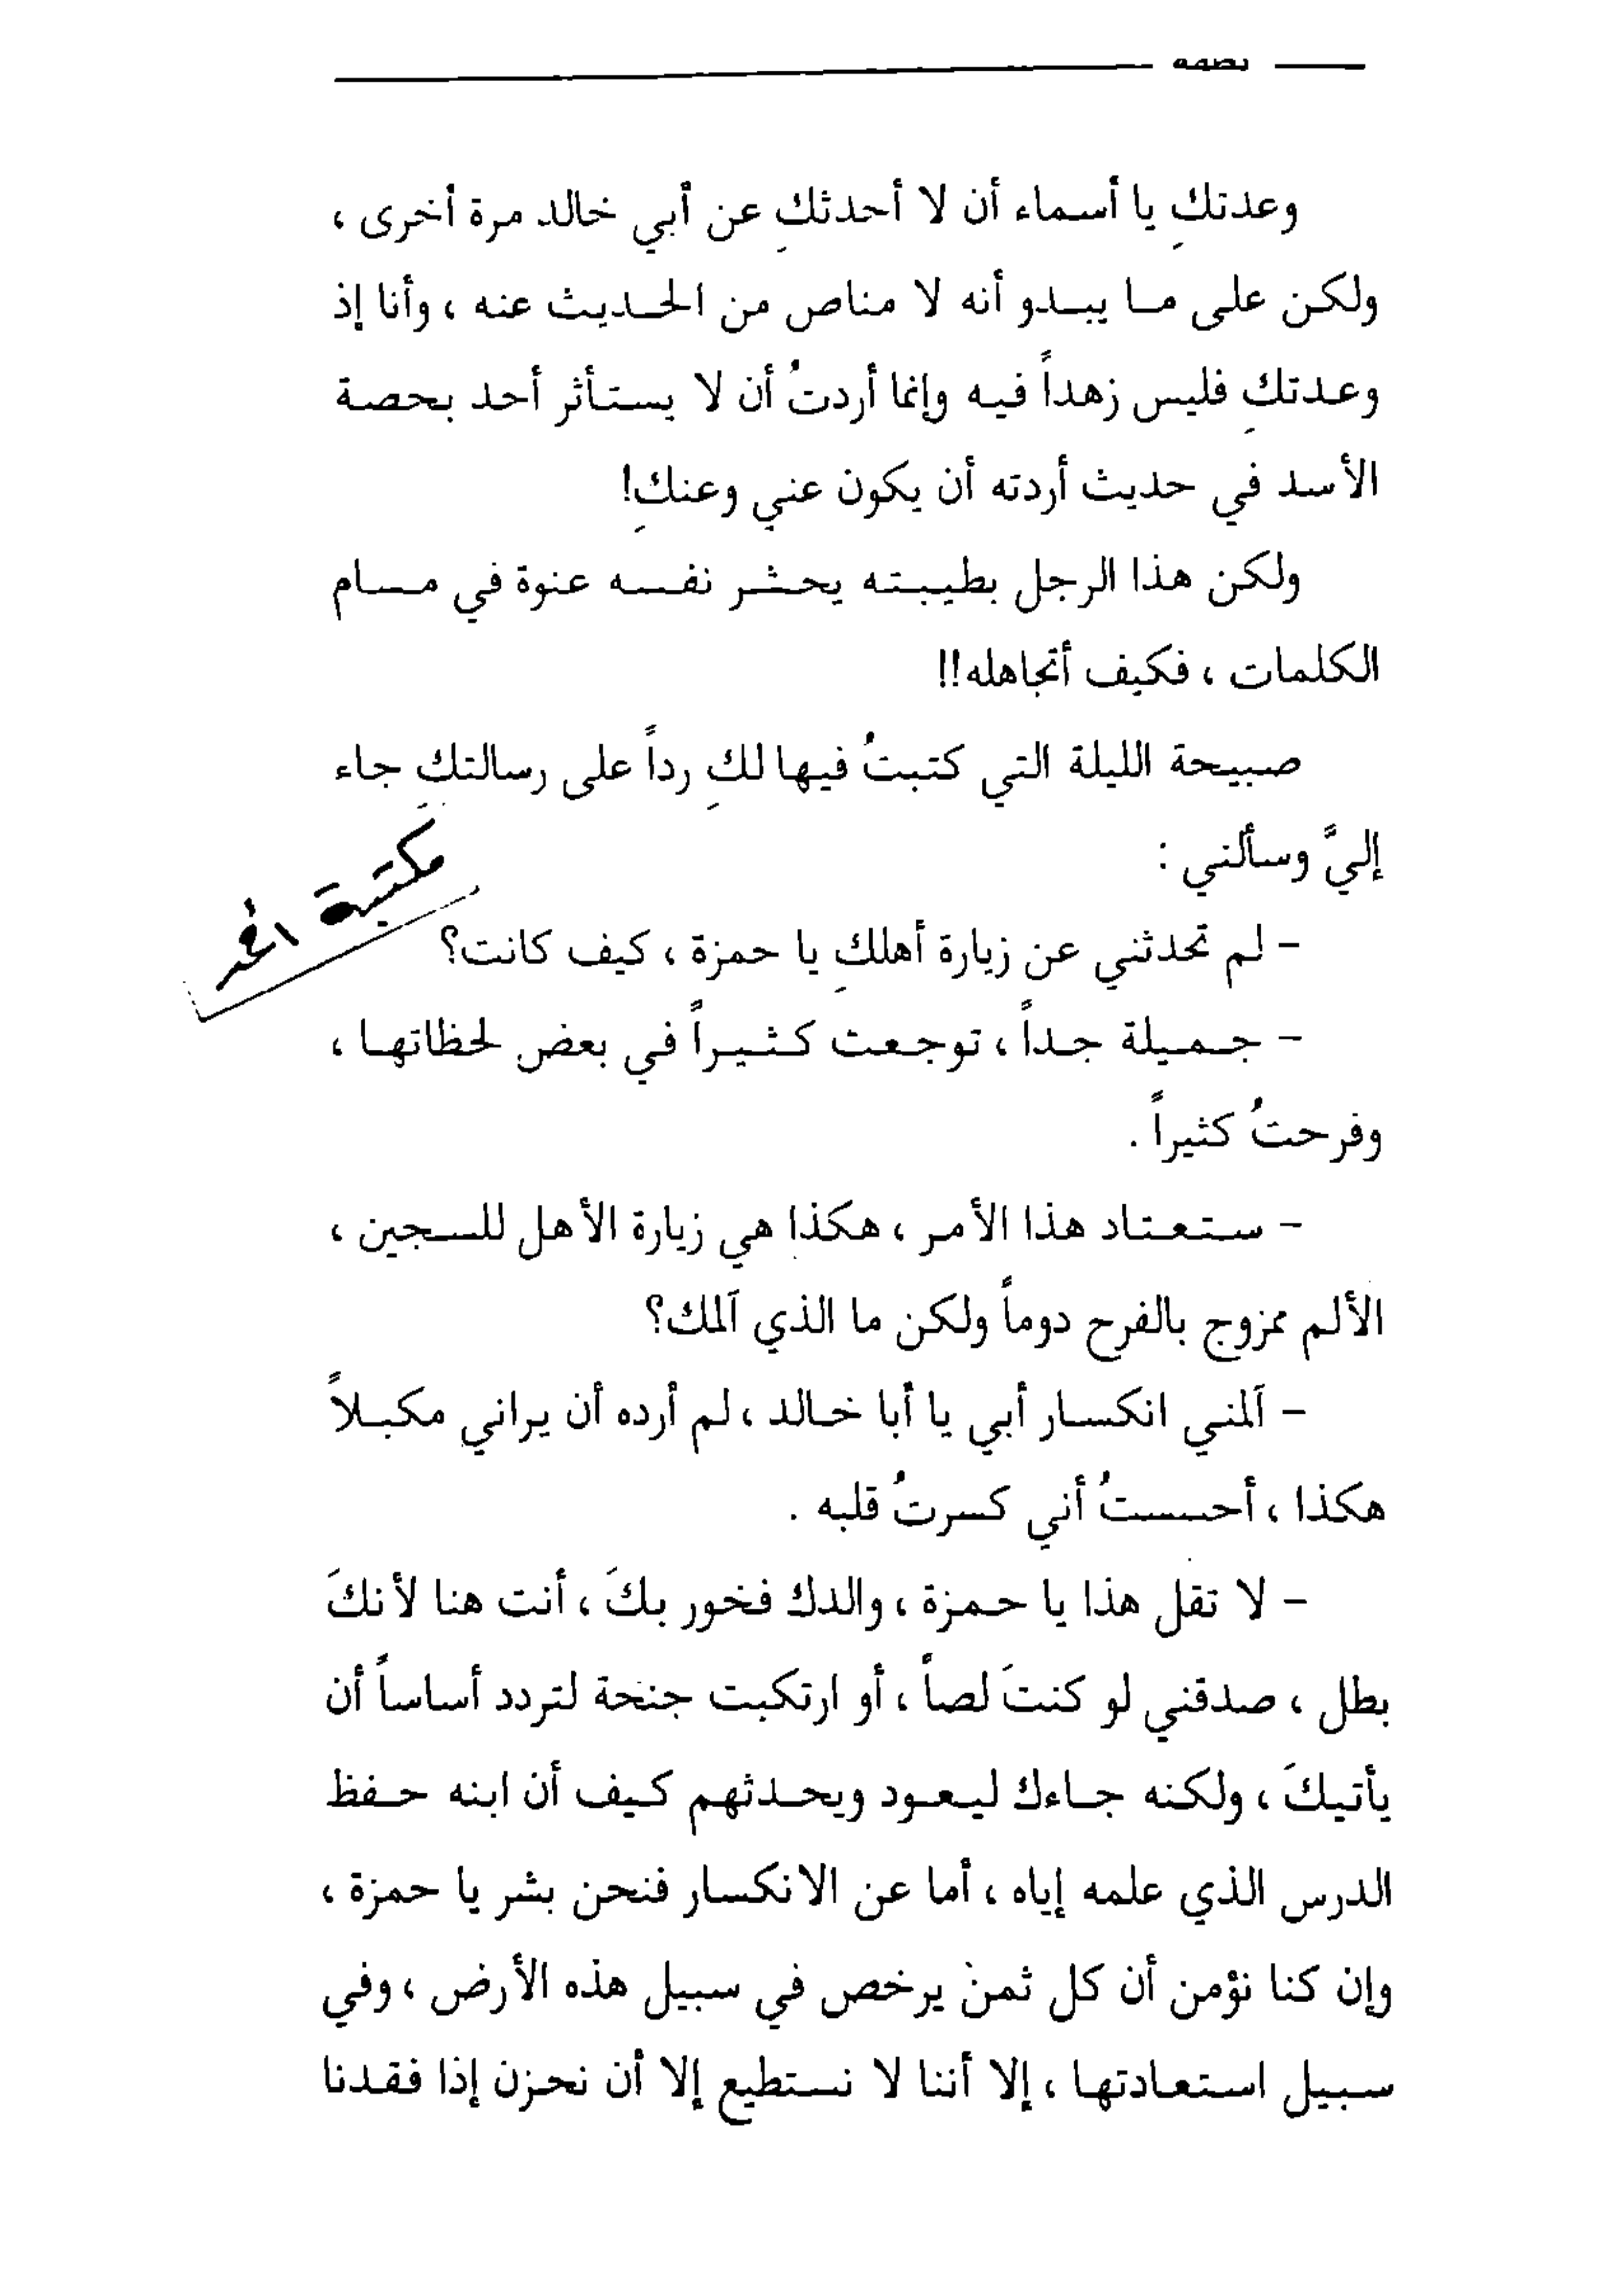 وعدتكِ يا أسماء أن لا أحدثكِ عن أبي خالد مرة أخرى ،
ولكن على ما يبدو أنه لا مناص من الحديث عنه ، وأنا إذ
وعدتكِ فليس زهداً فيه وإنما أردتُ أن لا يستأثر أحد بحصة
الأسد في حديث أردته أن يكون عني وعنكِ!
ولكن هذا الرجل بطيبته يحشر نفسه عنوة في مسام
الكلمات ، فكيف أتجاهله!!
صبيحة الليلة التي كتبتُ فيها لكِ رداً على رسالتكِ جاء
إليَّ وسألني :
– لم تحدثني عن زيارة أهلكِ يا حمزة ، كيف كانت؟
مكتبة
– جميلة جداً ، توجعت كثيراً في بعض لحظاتها ،
وفرحتُ كثيراً .
– ستعتاد هذا الأمر ، هكذا هي زيارة الأهل للسجين ،
الألم ممزوج بالفرح دوماً ولكن ما الذي آلمك؟
– آلمني انكسار أبي يا أبا خالد ، لم أرده أن يراني مكبلاً
هكذا ، أحسستُ أني كسرتُ قلبه .
– لا تقل هذا يا حمزة ، والدك فخور بكَ ، أنت هنا لأنكَ
بطل ، صدقني لو كنتَ لصاً ، أو ارتكبت جنحة لتردد أساساً أن
يأتيكَ ، ولكنه جاءك ليعود ويحدثهم كيف أن ابنه حفظ
الدرس الذي علمه إياه ، أما عن الانكسار فنحن بشر يا حمزة ،
وإن كنا نؤمن أن كل ثمنْ يرخص في سبيل هذه الأرض ، وفي
سبيل استعادتها ، إلا أننا لا نستطيع إلا أن نحزن إذا فقدنا